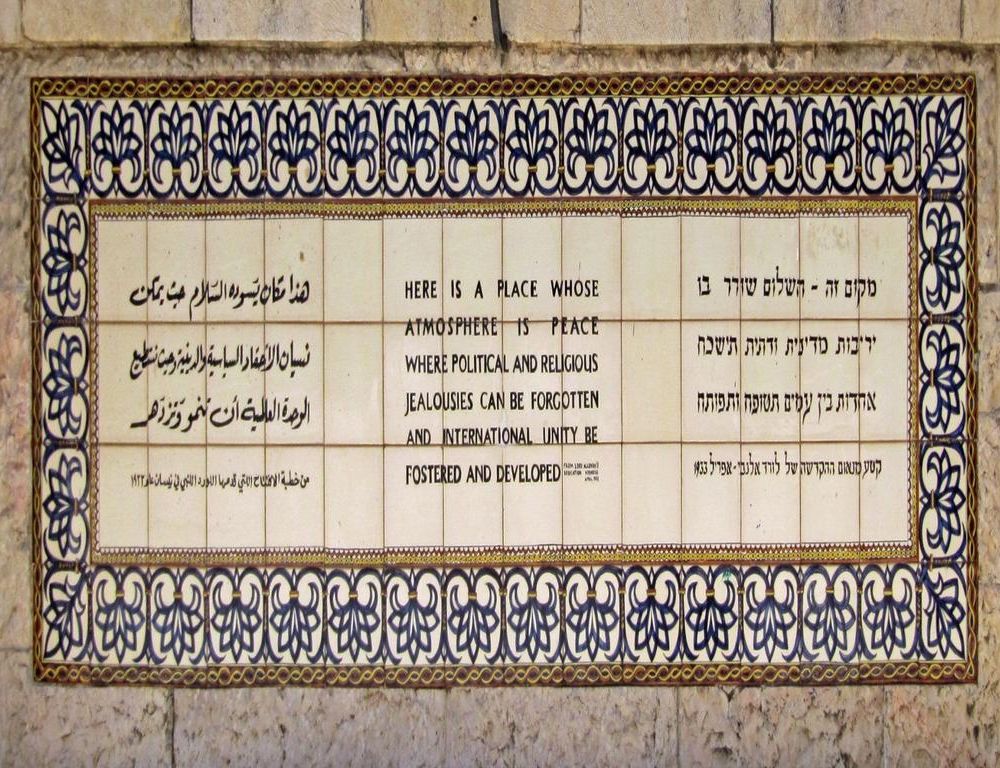 هذا مكان يسوده السّلام حيث يمكن
نسيان الأحقاد السياسية والدينية وحيث نستطيع
الوحدة العالمية أن تنمو وتزدهر
من خطبة الافتتاح اللتي قدمها اللورد اللنبي في نيسان عام ١٩٣٣
HERE IS A PLACE WHOSE
ATMOSPHERE IS PEACE
WHERE POLITICAL AND RELIGIOUS
JEALOUSIES CAN BE FORGOTTEN
AND INTERNATIONAL UNITY BE
FOSTERED AND DEVELOPED
FROM LORD ALLENBY'S
DEDICATION ADDRESS
APRIL 1933
מקום זה - השלום שורר בו
יריבות מדינית ודתית תישכח
אחדות בין עמים תטופח ותפותח
קטע מנאום ההקדשה של לורד אלנבי - אפריל 1933